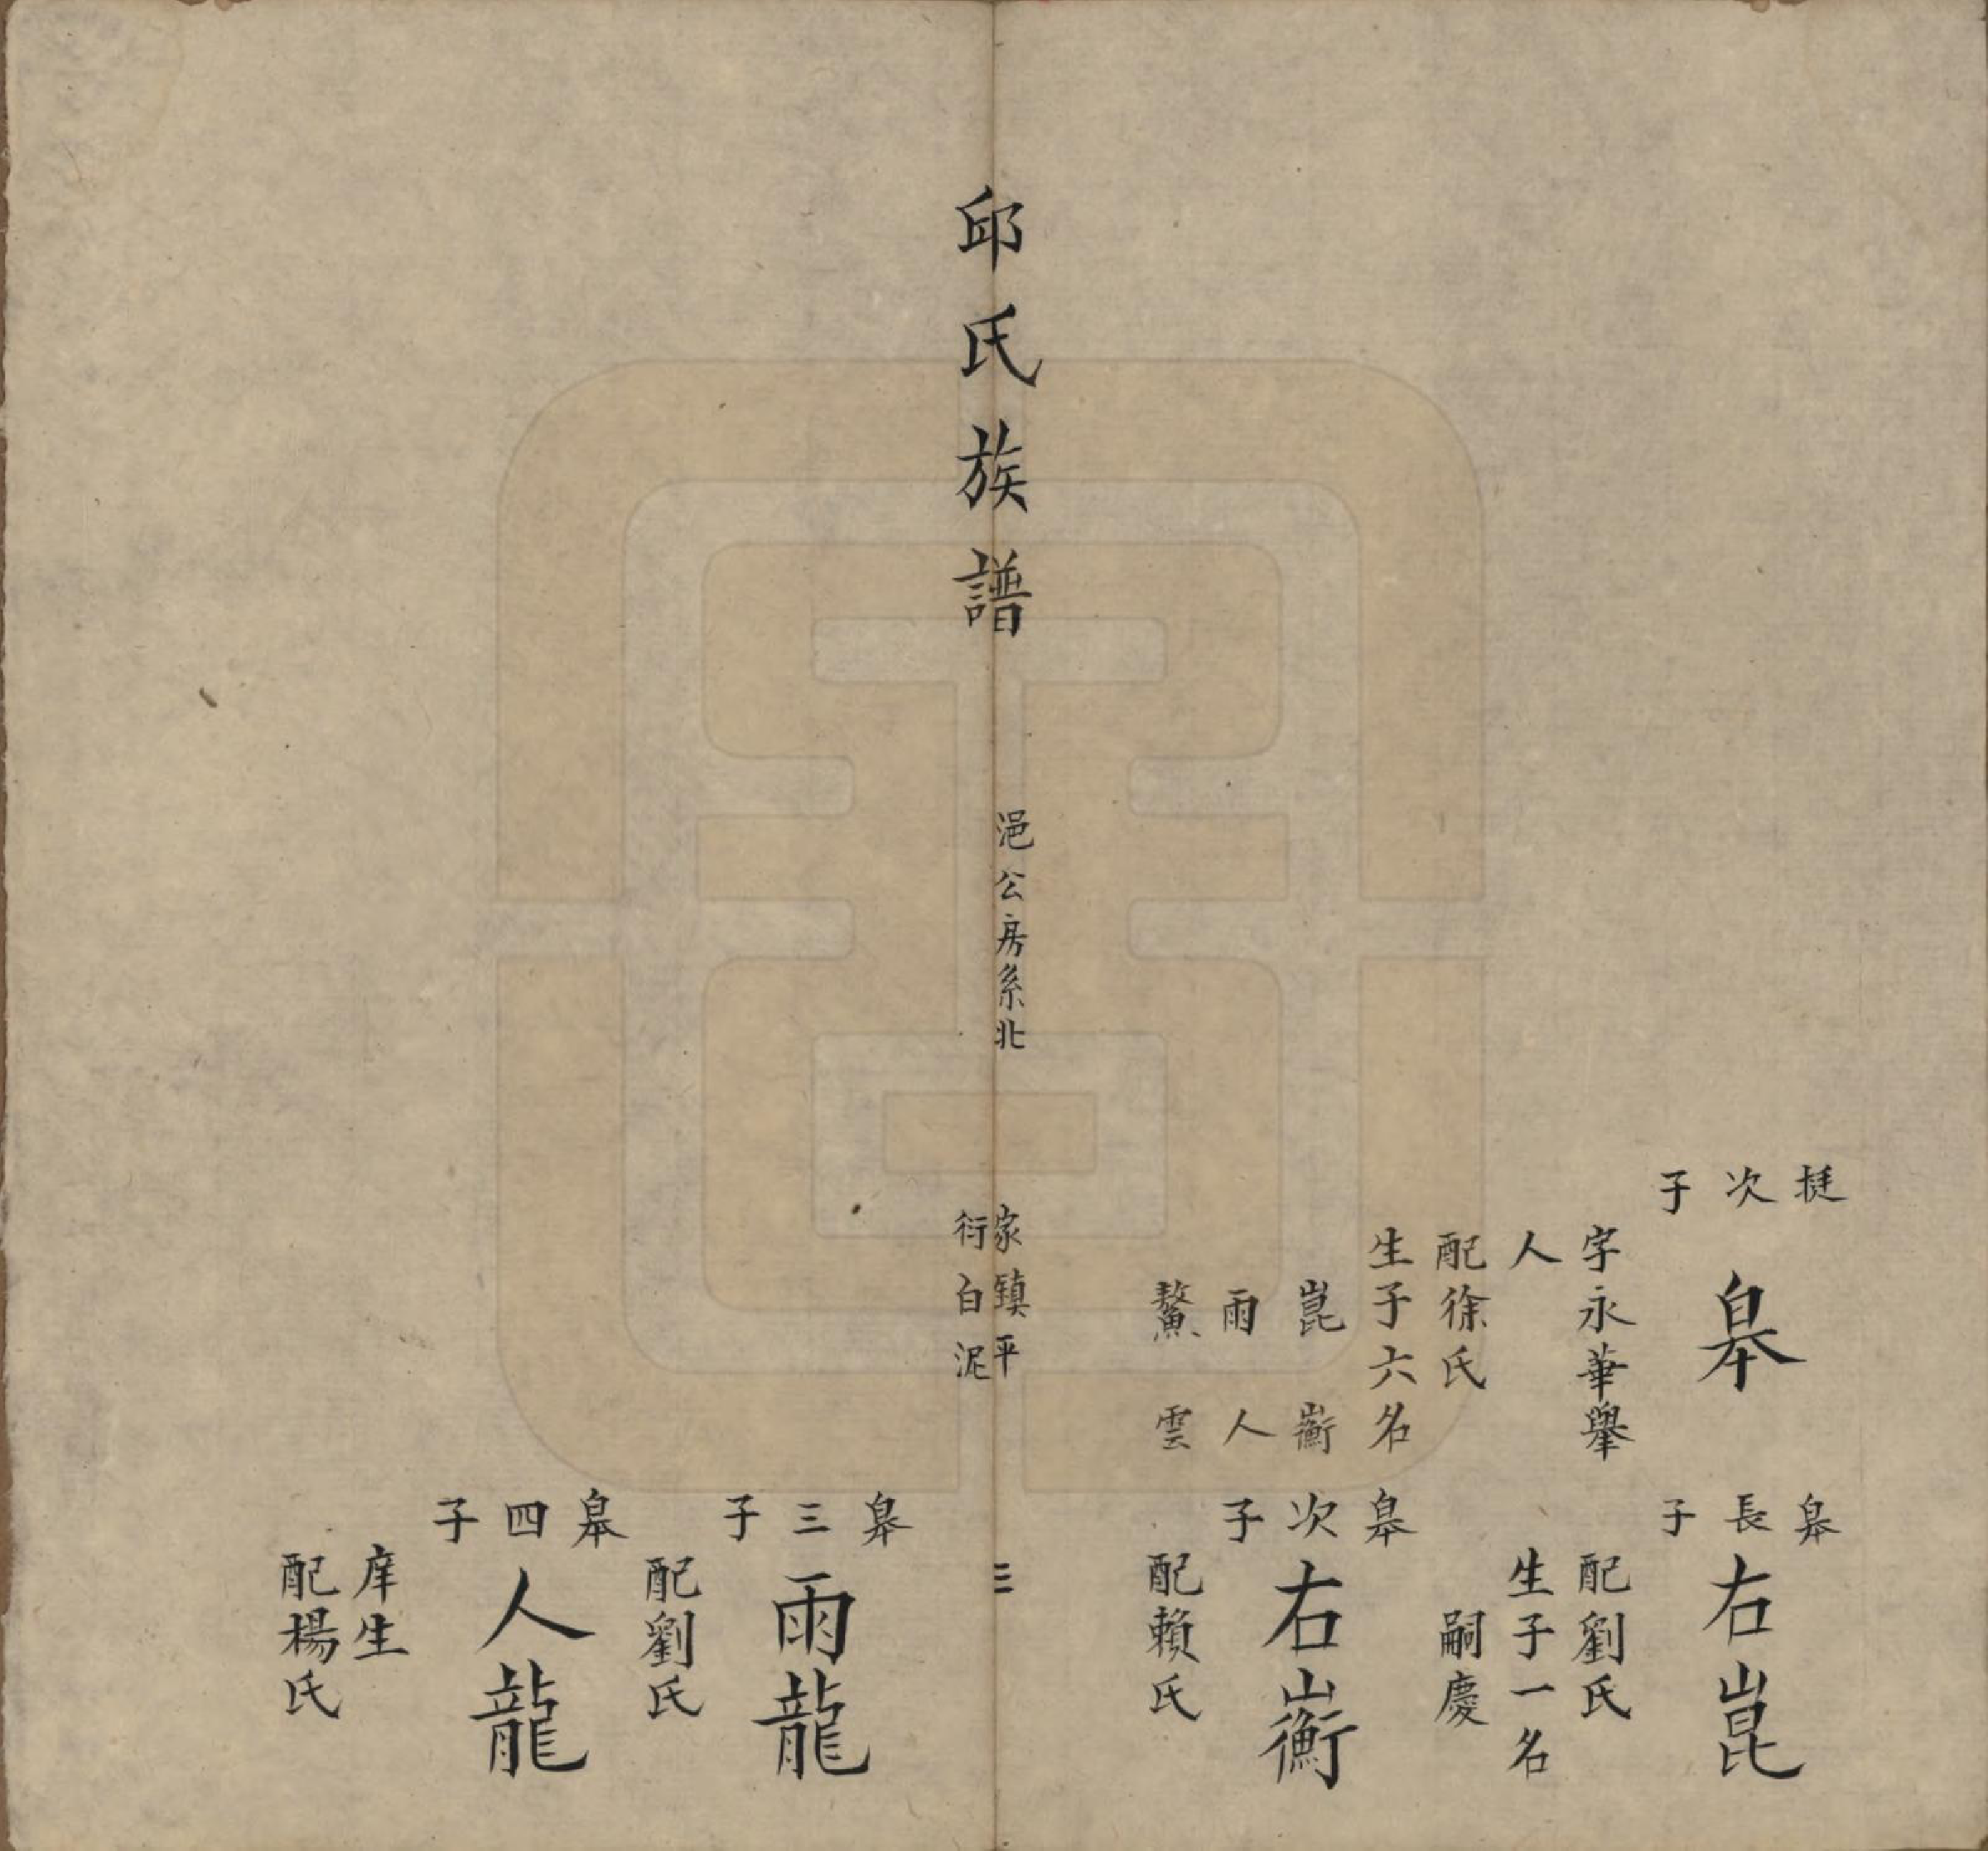 挺次子
皋
字永華舉
人
配徐氏
生子六名
崑 衡
雨 人
鰲 雲
皋長子
右崑
配劉氏
生子一名
嗣慶
皋次子
右衡
配賴氏
邱氏族譜
浥公房系北
家鎮平
衍白泥
三
皋三子
雨龍
配劉氏
皋四子
人龍
庠生
配楊氏